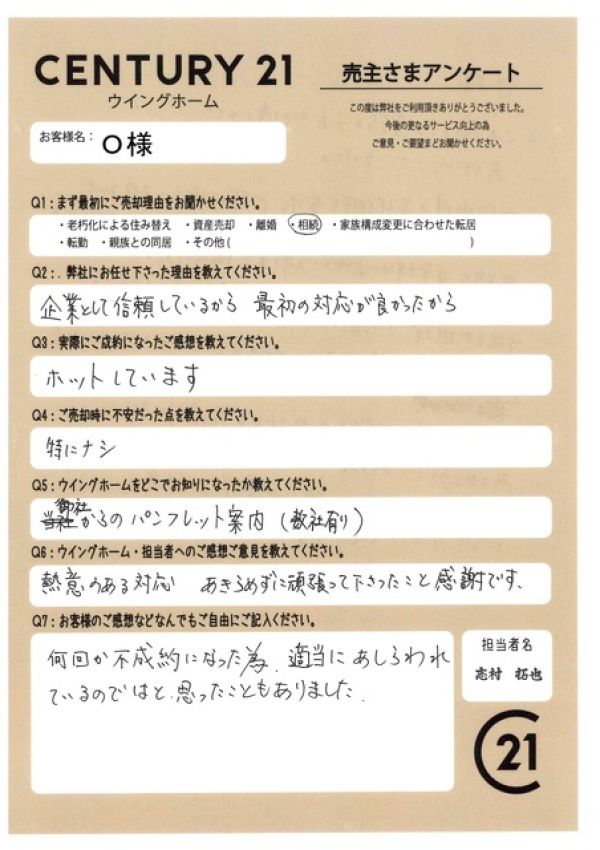 CENTURY 21
ウイングホーム
売主さまアンケート
この度は弊社をご利用頂きありがとうございました。
今後の更なるサービス向上の為
ご意見・ご要望をお聞かせください。
お客様名： O様
Q1：まず最初にご売却理由をお聞かせください。
・老朽化による住み替え ・資産売却 ・離婚 ・相続 ・家族構成変更に合わせた転居
・転勤 ・親族との同居 ・その他( )
Q2：. 弊社にお任せ下さった理由を教えてください。
企業として信頼しているから 最初の対応が良かったから
Q3：実際にご成約になったご感想を教えてください。
ホットしています
Q4：ご売却時に不安だった点を教えてください。
特にナシ
Q5：ウイングホームをどこでお知りになったか教えてください。
御社
当社からの パンフレット案内 (数社有り)
Q6：ウイングホーム・担当者へのご感想ご意見を教えてください。
熱意のある対応 あきらめずに頑張って下さったこと感謝です。
Q7：お客様のご感想などなんでもご自由にご記入ください。
何回か不成約になった為、適当にあしらわれ
ているのではと思ったこともありました。
担当者名
志村 拓也
21